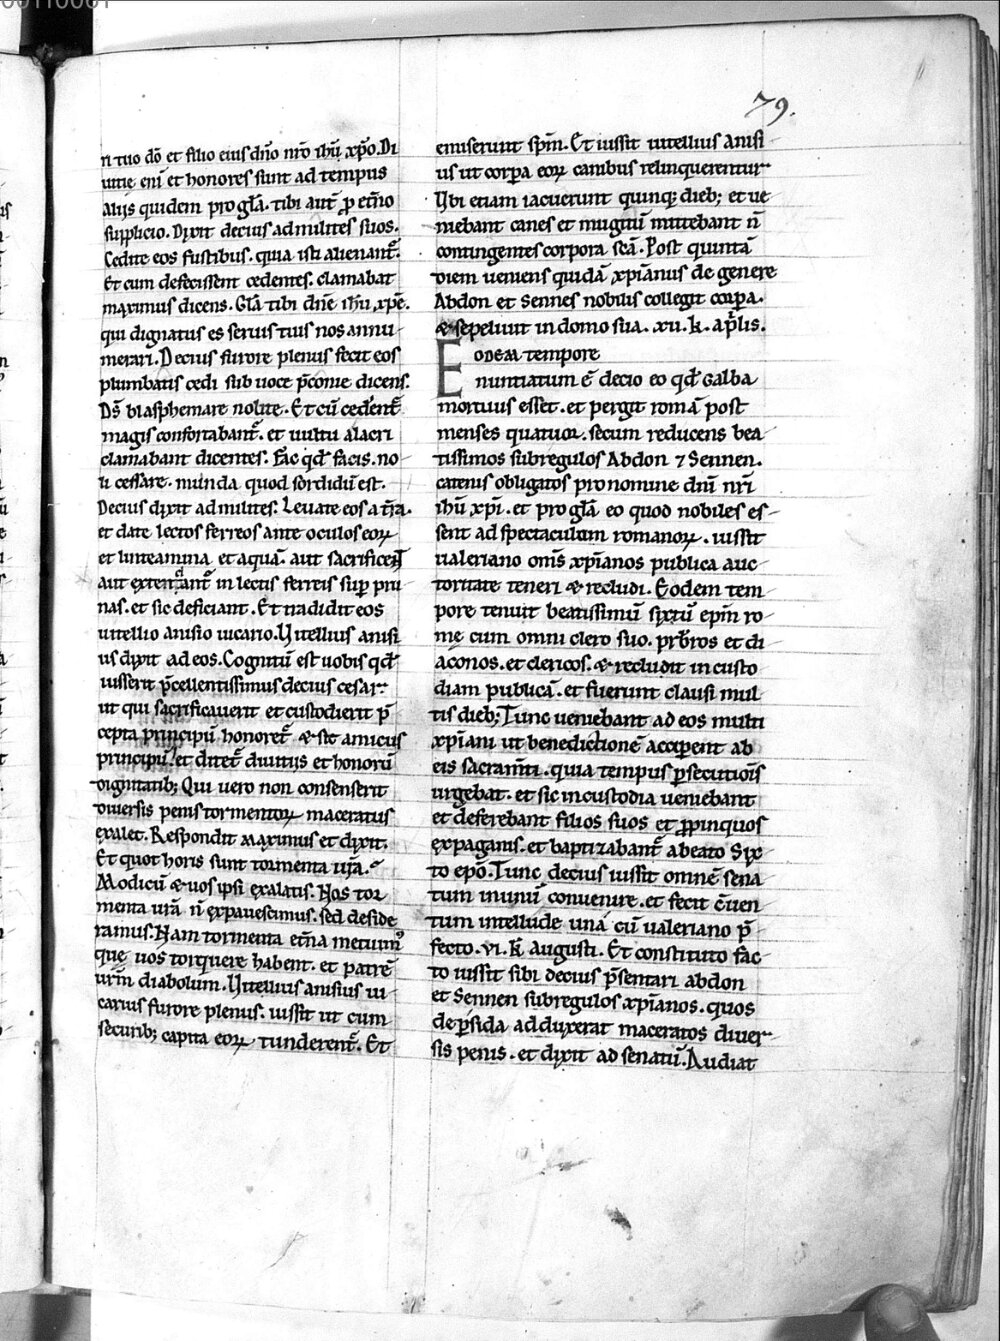 79.
ri tuo dō et filio eius dn̄o nr̄o ihū xp̄o. Di
uitie eni et honores sunt ad tempus
aliis quidem pro gl̄a. tibi aut̄ p̄ et̄no
supplicio. Dixit decius ad milites suos.
Cedite eos fustibus. quia isti alienant̄.
Et cum defecissent cedentes. clamabat
maximus dicens. Gl̄a tibi dn̄e ihū xp̄e.
qui dignatus es seruis tuis nos annu
merari. Decius furore plenus fecit eos
plumbatis cedi sub uoce p̄conie dicens.
Ds̄ blasphemare nolite. Et cū cedent̄
magis confortabant̄. et uultu alacri
clamabant dicentes. Fac qd̄ facis. no
li cessare. munda quod sordidū est.
Decius dixit ad milites. Leuate eos a t̄ra.
et date lectos ferreos ante oculos eoꝝ
et linteamina et aquā. aut sacrificent
aut extendant̄ in lectis ferreis sup̄ pru
nas. et sic deficiant. Et tradidit eos
uitellio anisio uicario. Uitellius anisi
us dixit ad eos. Cognitū est uobis qd̄
iusserit p̄cellentissimus decius cesar.
ut qui sacrificauerit et custodierit p̄
cepta principū honoret̄ & sit amicus
principū et ditet̄ diuitiis et honorū
dignitatib; Qui uero non consenserit
diuersis penis tormentoꝝ maceratus
exalet. Respondit maximus et dixit.
Et quot horis sunt tormenta ur̄a.
Modicū & uos ipsi exalatis. Nos tor
menta ur̄a n̄ expauescimus. sed deside
ramus. Nam tormenta et̄na metuimꝰ
que uos torquere habent. et patrē
ur̄m diabolum. Uitellius anisius ui
carius furore plenus. iussit ut cum
securib; capita eoꝝ tunderent̄. Et
emiserunt sp̄m. Et iussit uitellius anisi
us ut corp̄a eoꝝ canibus relinquerentur
Ubi etiam iacuerunt quinq; dieb; et ue
niebant canes et mugitū mittebant n̄
contingentes corpora sc̄a. Post quintā
diem ueniens quidā xp̄ianus de genere
Abdon et Sennes nobilis collegit corp̄a.
& sepeliuit in domo sua. xv. k. ap̄lis.
Eodem tempore
nuntiatum ē decio eo qd̄ Galba
mortuus esset. et pergit romā post
menses quatuor. secum reducens bea
tissimos subregulos Abdon ⁊ Sennen.
catenis obligatos pro nomine dn̄i nr̄i
ihū xp̄i. et pro gl̄a eo quod nobiles es
sent ad spectaculum romanoꝝ. iussit
ualeriano om̄s xp̄ianos publica auc
toritate teneri & recludi. Eodem tem
pore tenuit beatissimū sixtū ep̄m ro
mę cum omni clero suo. prb̄ros et di
aconos. et clericos. & recludit in custo
diam publicā. et fuerunt clausi mul
tis dieb; Tunc ueniebant ad eos multi
xp̄iani ut benedictionē accip̄ent ab
eis sacram̄ti. quia tempus p̄secutiōis
urgebat. et sic in custodia ueniebant
et deferebant filios suos et p̄pinquos
ex paganis. et baptizabant̄ a beato Six
to ep̄o. Tunc decius iussit omnē sena
tum in unū conuenire. et fecit c̄uen
tum intellude una cū ualeriano p̄
fecto. vi. k̄ augusti. Et constituto fac
to iussit sibi decius p̄sentari abdon
et Sennen subregulos xp̄ianos. quos
de p̄sida adduxerat maceratos diuer
sis penis. et dixit ad senatū. Audiat